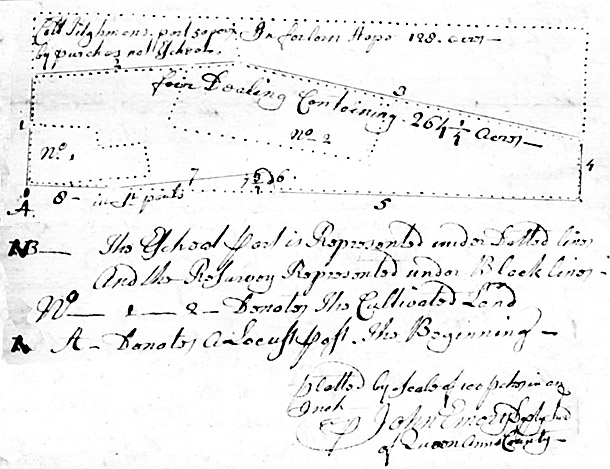 Coll Tilghmans part
by purchas
In forlorn Hope 128 acres —
2
3
fair Dealing Containing 264 1/4 acres —
1
No 2
No 1
4
7
6
8 — in St
5
A
NB — The Escheat Part is Represented under Dotted lines
And the Resurvey Represented under Black lines —
No — 1 — 2 — Denotes The Cultivated Land
A — Denotes a Locust Post. The Beginning —
platted by scale of 100 pches in an
Inch
John Emory
of Queen Anns County —